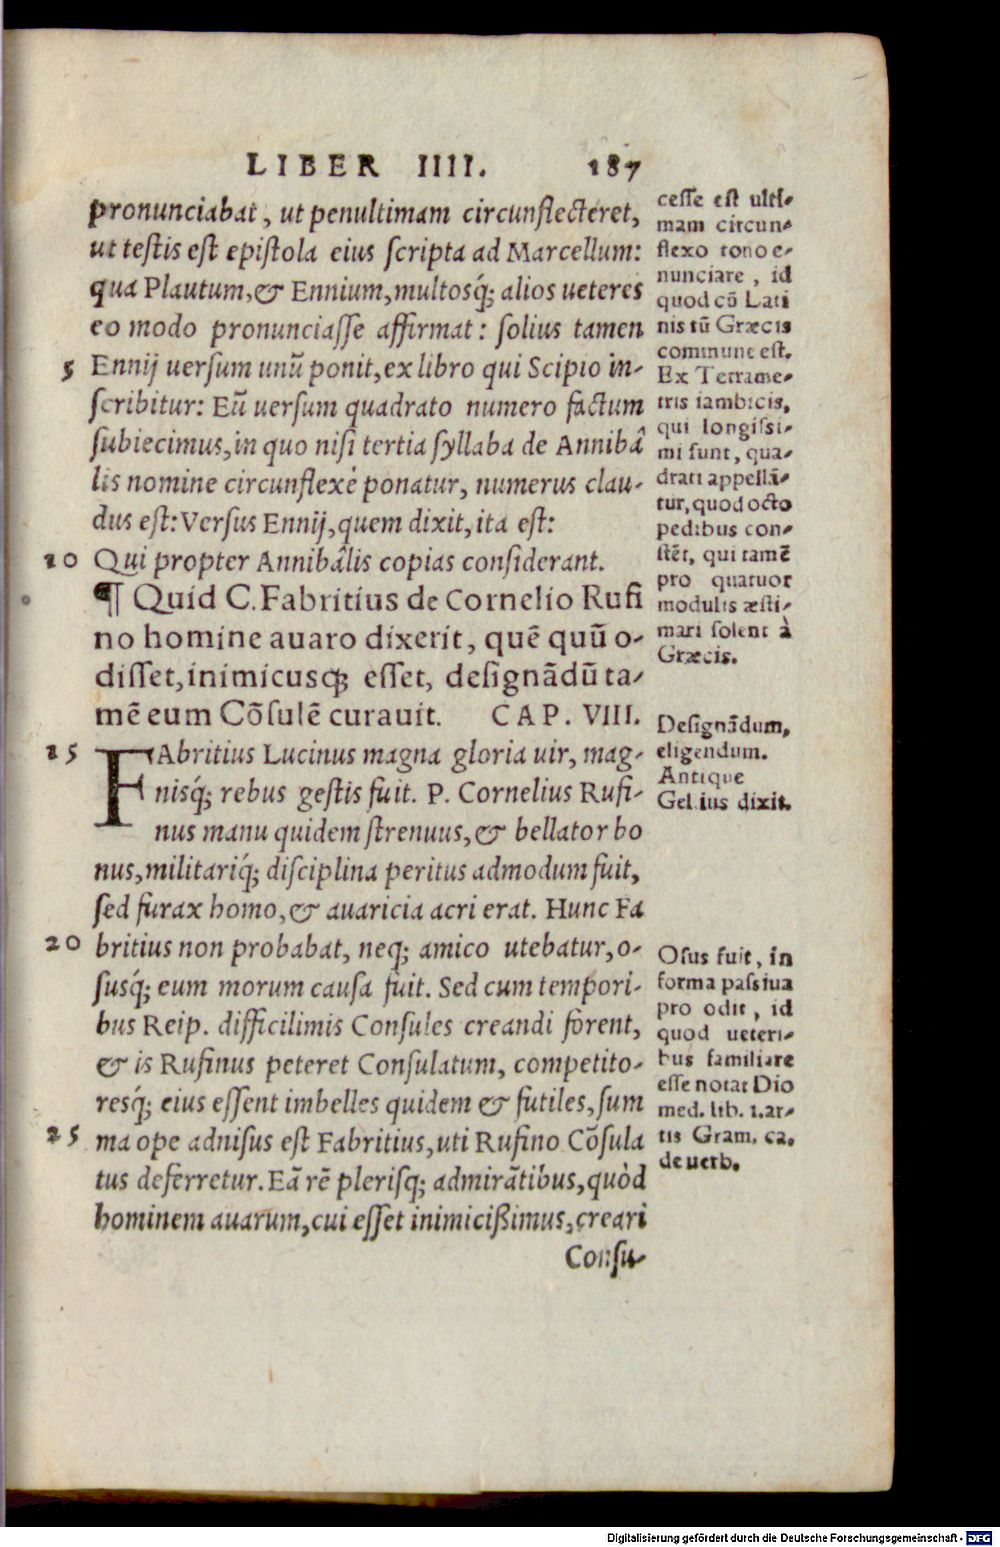 LIBER IIII. 187
pronunciabat, ut penultimam circunflecteret,
ut testis est epistola eius scripta ad Marcellum:
qua Plautum, & Ennium, multosq́; alios ueteres
eo modo pronunciasse affirmat: solius tamen
5 Ennij uersum unũ ponit, ex libro qui Scipio in-
scribitur: Eũ uersum quadrato numero factum
subiecimus, in quo nisi tertia syllaba de Annibâ
lis nomine circunflexè ponatur, numerus clau-
dus est: Versus Ennij, quem dixit, ita est:
10 Qui propter Annibâlis copias considerant.
¶ Quid C. Fabritius de Cornelio Rufi
no homine auaro dixerit, quẽ quũ o-
disset, inimicusq; esset, designãdũ ta-
mẽ eum Cõsulẽ curauit. CAP. VIII.
15 FAbritius Lucinus magna gloria uir, mag-
nisq́; rebus gestis fuit. P. Cornelius Rufi-
nus manu quidem strenuus, & bellator bo
nus, militariq́; disciplina peritus admodum fuit,
sed furax homo, & auaricia acri erat. Hunc Fa
20 britius non probabat, neq; amico utebatur, o-
susq́; eum morum causa fuit. Sed cum tempori-
bus Reip. difficilimis Consules creandi forent,
& is Rufinus peteret Consulatum, competito-
resq́; eius essent imbelles quidem & futiles, sum
25 ma ope adnisus est Fabritius, uti Rufino Cõsula
tus deferretur. Eã rẽ plerisq; admirãtibus, quòd
hominem auarum, cui esset inimicißimus, creari
Consu-
cesse est ulti-
mam circun-
flexo tono e-
nunciare, id
quod cõ Lati
nis tũ Græcis
commune est.
Ex Tetrame-
tris iambicis,
qui longissi-
mi sunt, qua-
drati appellã-
tur, quod octo
pedibus con-
stẽt, qui tamẽ
pro quatuor
modulis æsti-
mari solent à
Græcis.
Designãdum,
eligendum.
Antique
Gellius dixit.
Osus fuit, in
forma passiua
pro odit, id
quod ueteri-
bus familiare
esse notat Dio
med. lib. 1. ar-
tis Gram. ca.
de uerb.
Digitalisierung gefördert durch die Deutsche Forschungsgemeinschaft - DFG